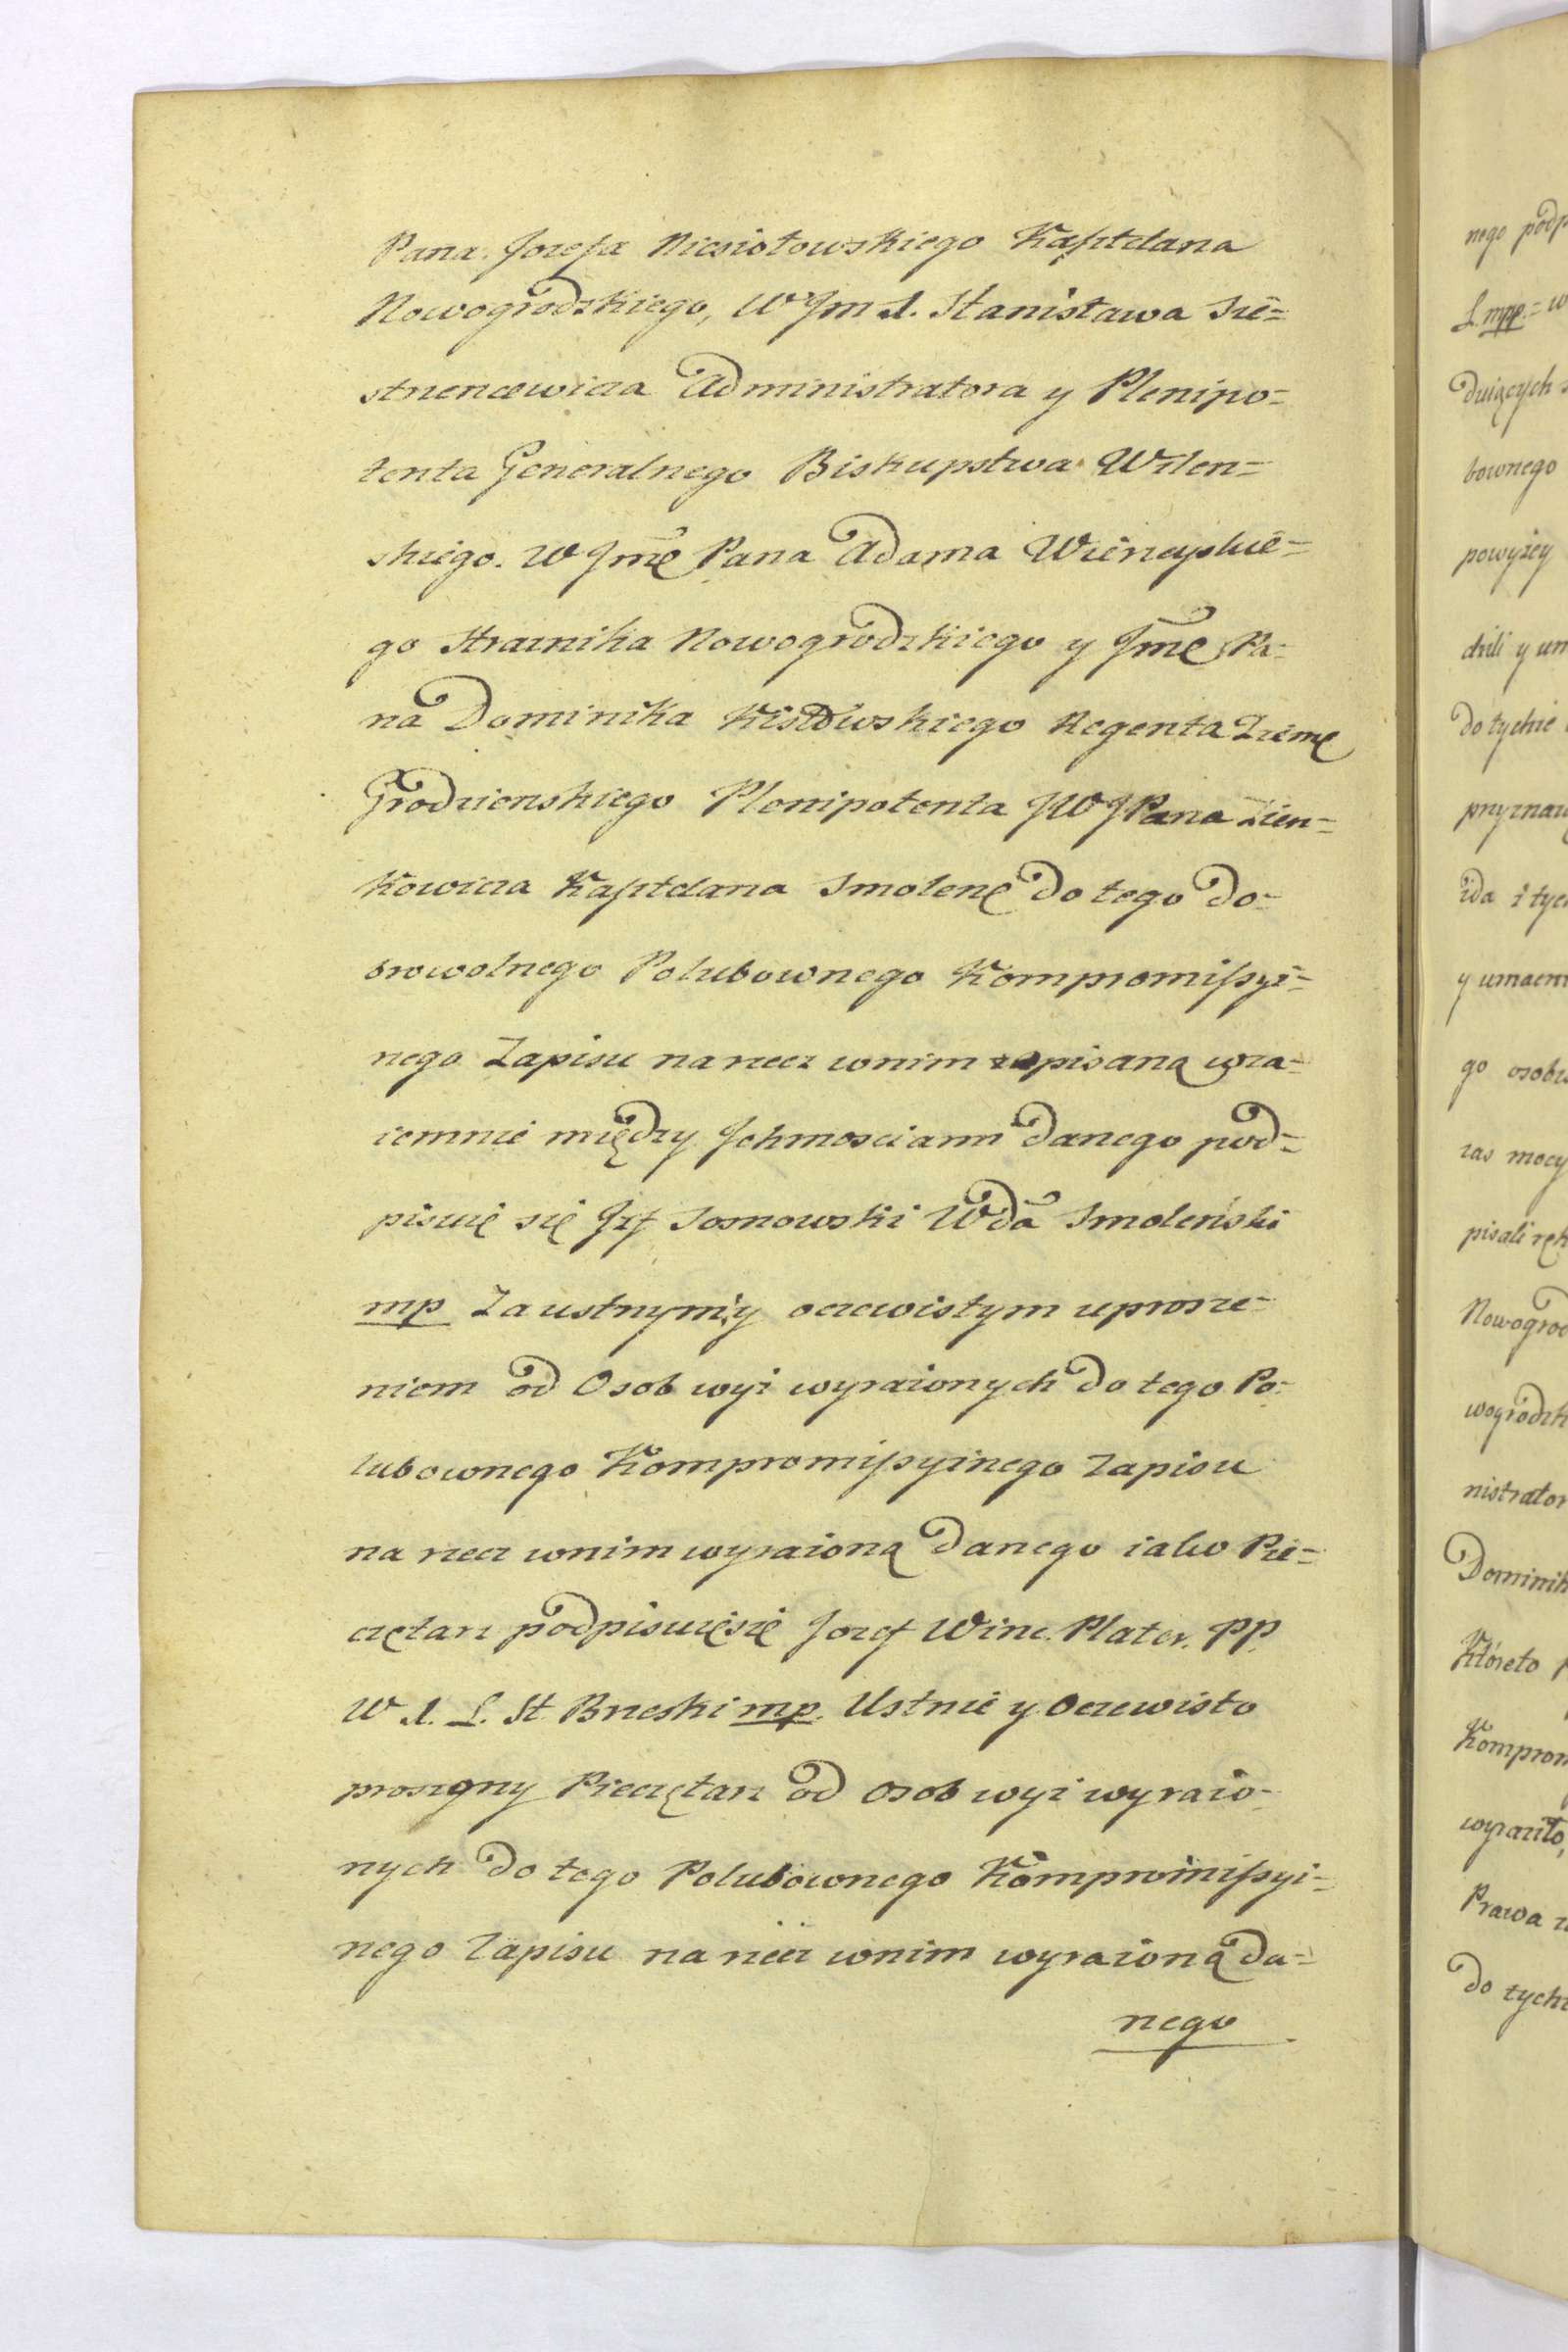 Pana Jozefa Niesiołowskiego Kasztelana
Nowogrodzkiego, WJm X. Stanisława Sie=
strzencewicza Administratora y Plenipo=
tenta Generalnego Biskupstwa Wilen=
skiego. W Jmę Pana Adama
go Straznika Nowogrodzkiego y Jmę Pa=
na Dominika Kisłowskiego Regenta Ziemę
Grodzienskiego Plenipotenta JW JPana Zien=
kowicza Kasztelana Smolenę do tego do=
browolnego Polubownego Kompromissyi=
nego Zapisu na rzecz wnim zapisaną wza=
iemnie między Ichmosciami danego pod=
pisuię się Jzf Sosnowski Wda Smoleński
mp Za ustnym y oczewistym uprosze=
niem od Osob wyż wyrażonych do tego Po=
lubownego Kompromissyinego Zapisu
na rzecz wnim wyrażoną danego iako Pie=
czętarz podpisuięsię Jozef Winc. Plater. PP.
W. X. L. St Brzeski mp. Ustnie y Oczewisto
proszony Pieczętarz od osob wyż wyrażo=
nych do tego Polubownego Kompromissyi=
nego Zapisu na rzecz wnim wyrażoną da=
nego
nego
L. mpp. = w
duiących
bownego
powyżey
dzili y um
do tychże
przyznaw
y umacni
go osobi
zas mocy
pisali ręk
Nowogrod
wogrodzk
nistrator
Dominik
Któreto
Komprom
wyraziło,
Prawa
do tychż